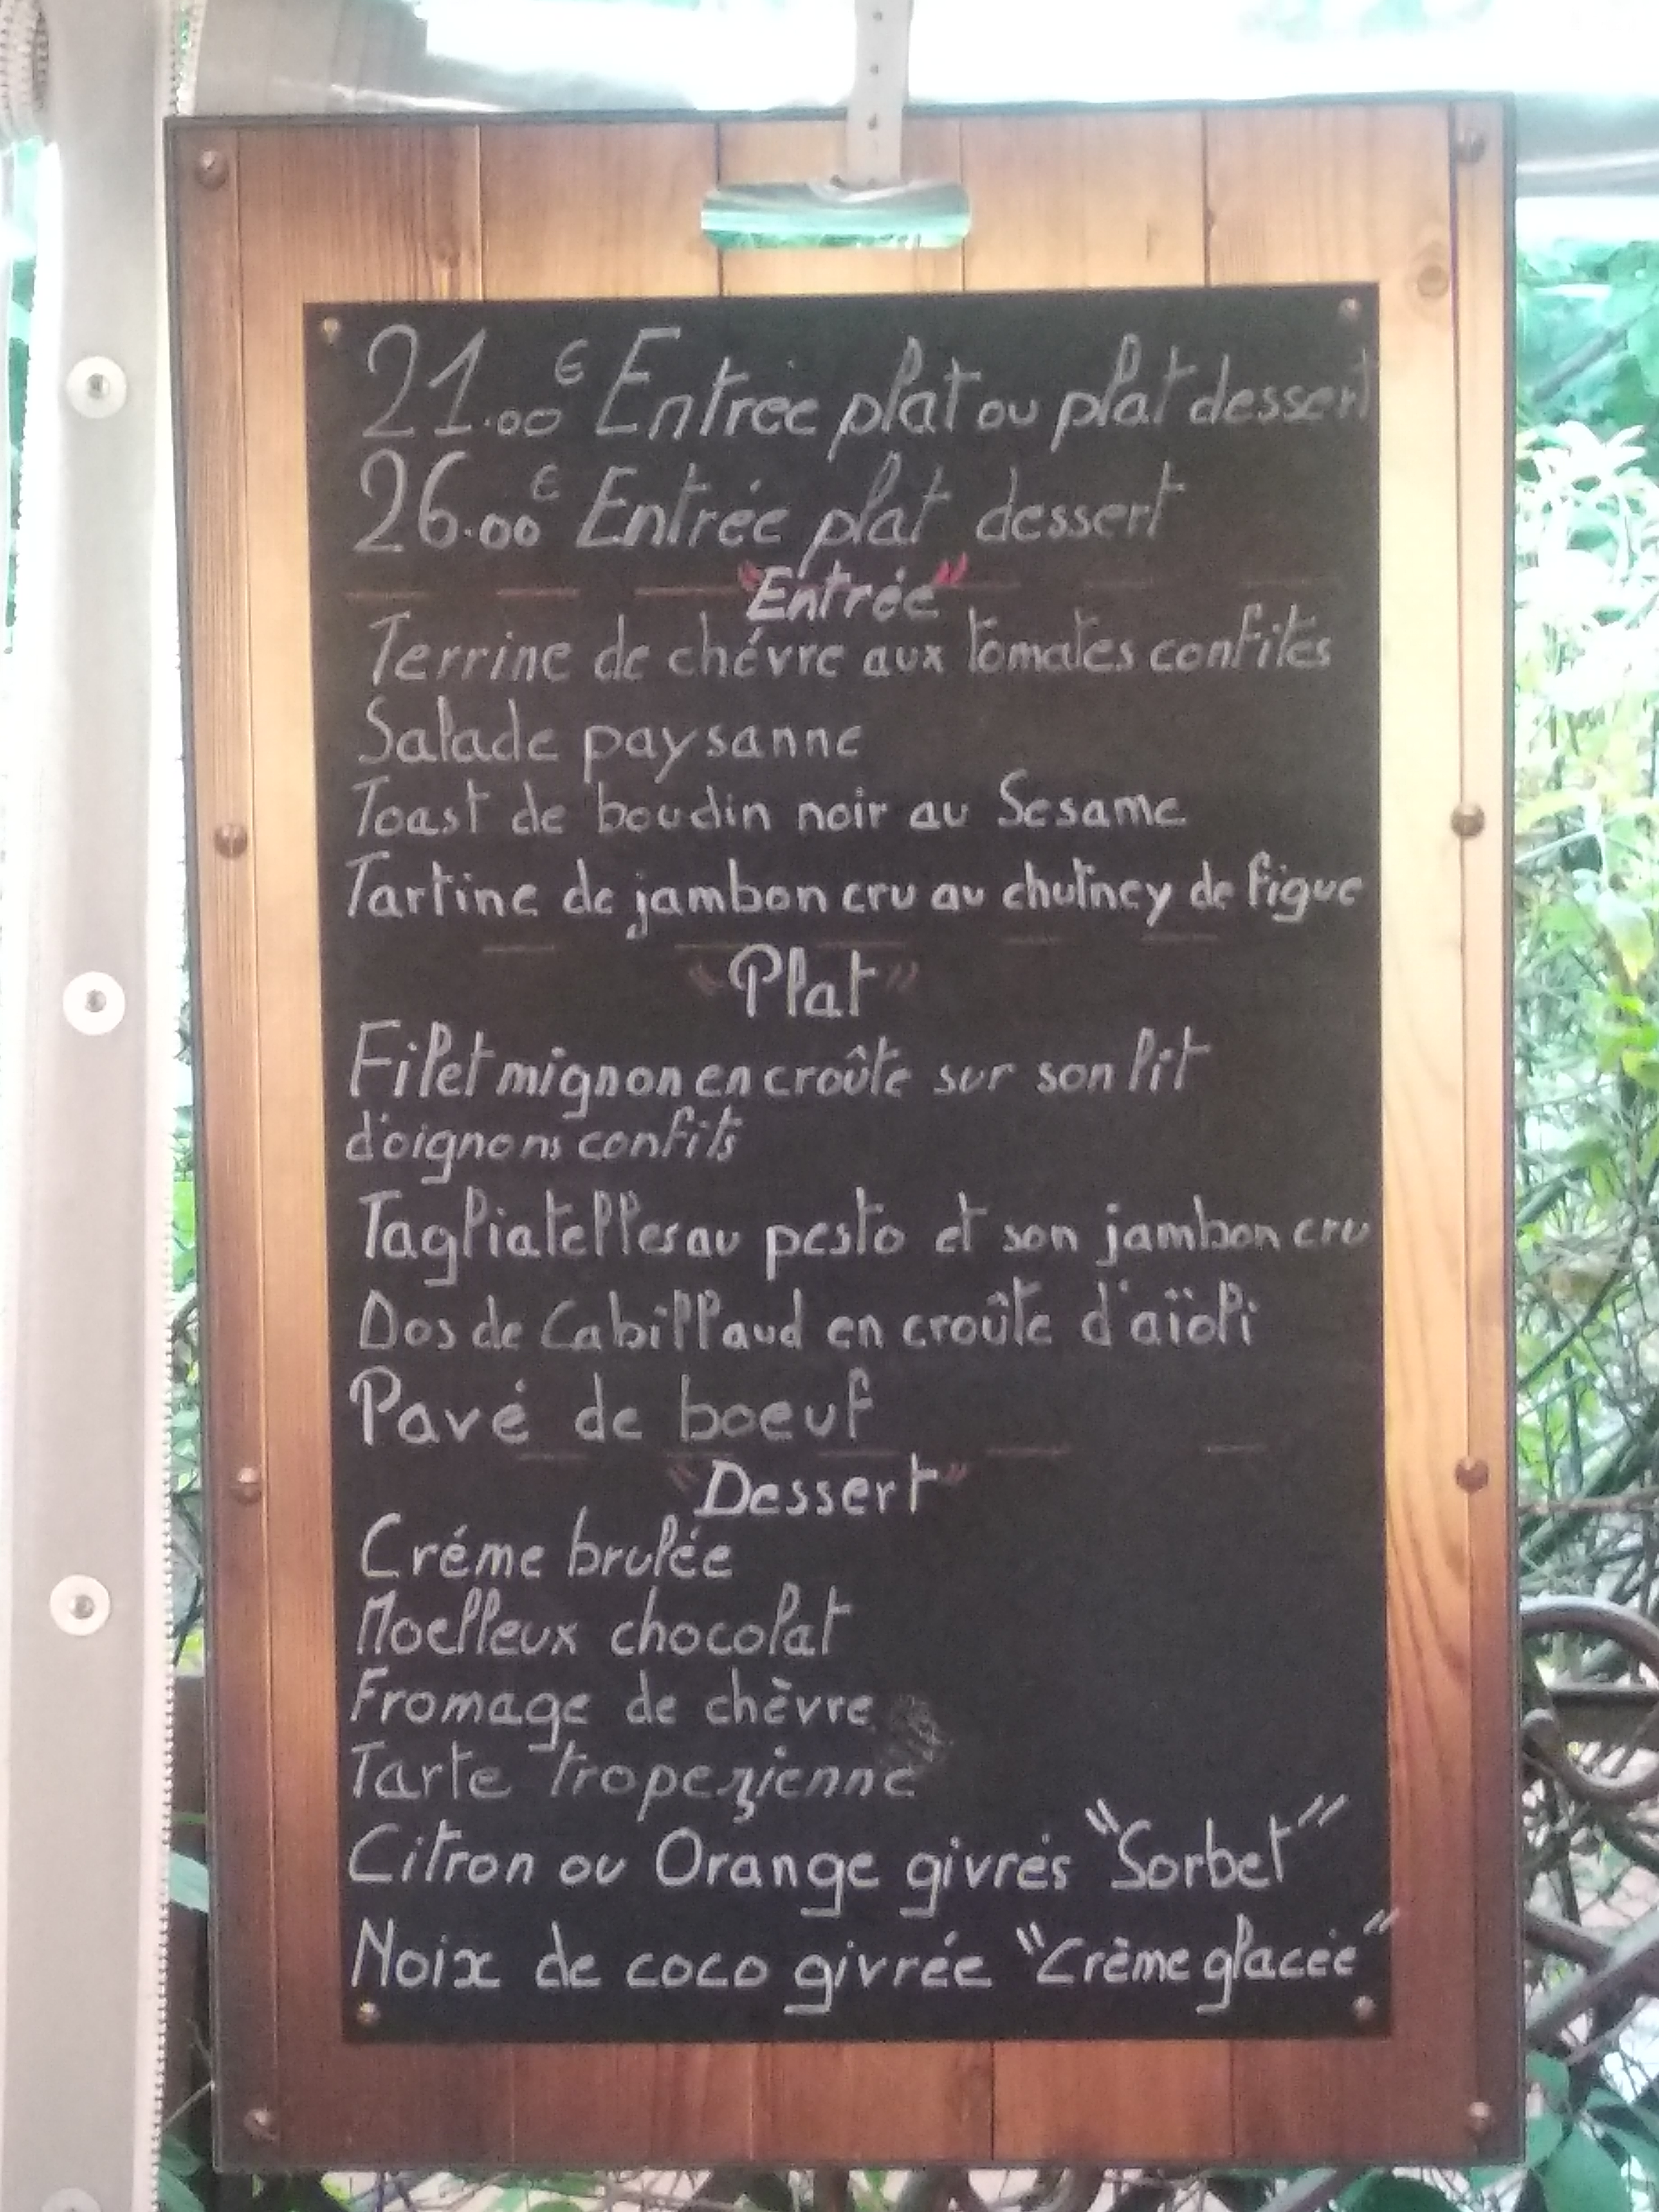 21.00€ Entrée plat ou plat dessert
26.00€ Entrée plat dessert
"Entrée"
Terrine de chévre aux tomates confites
Salade paysanne
Toast de boudin noir au Sesame
Tartine de jambon cru au chutney de figue
"Plat"
Filet mignon en croûte sur son lit
d'oignons confits
Tagliatelles au pesto et son jambon cru
Dos de Cabillaud en croûte d'aïoli
Pavé de boeuf
"Dessert"
Créme brulée
Moelleux chocolat
Fromage de chèvre
Tarte tropezienne
Citron ou Orange givrés "Sorbet"
Noix de coco givrée "Crème glacée"